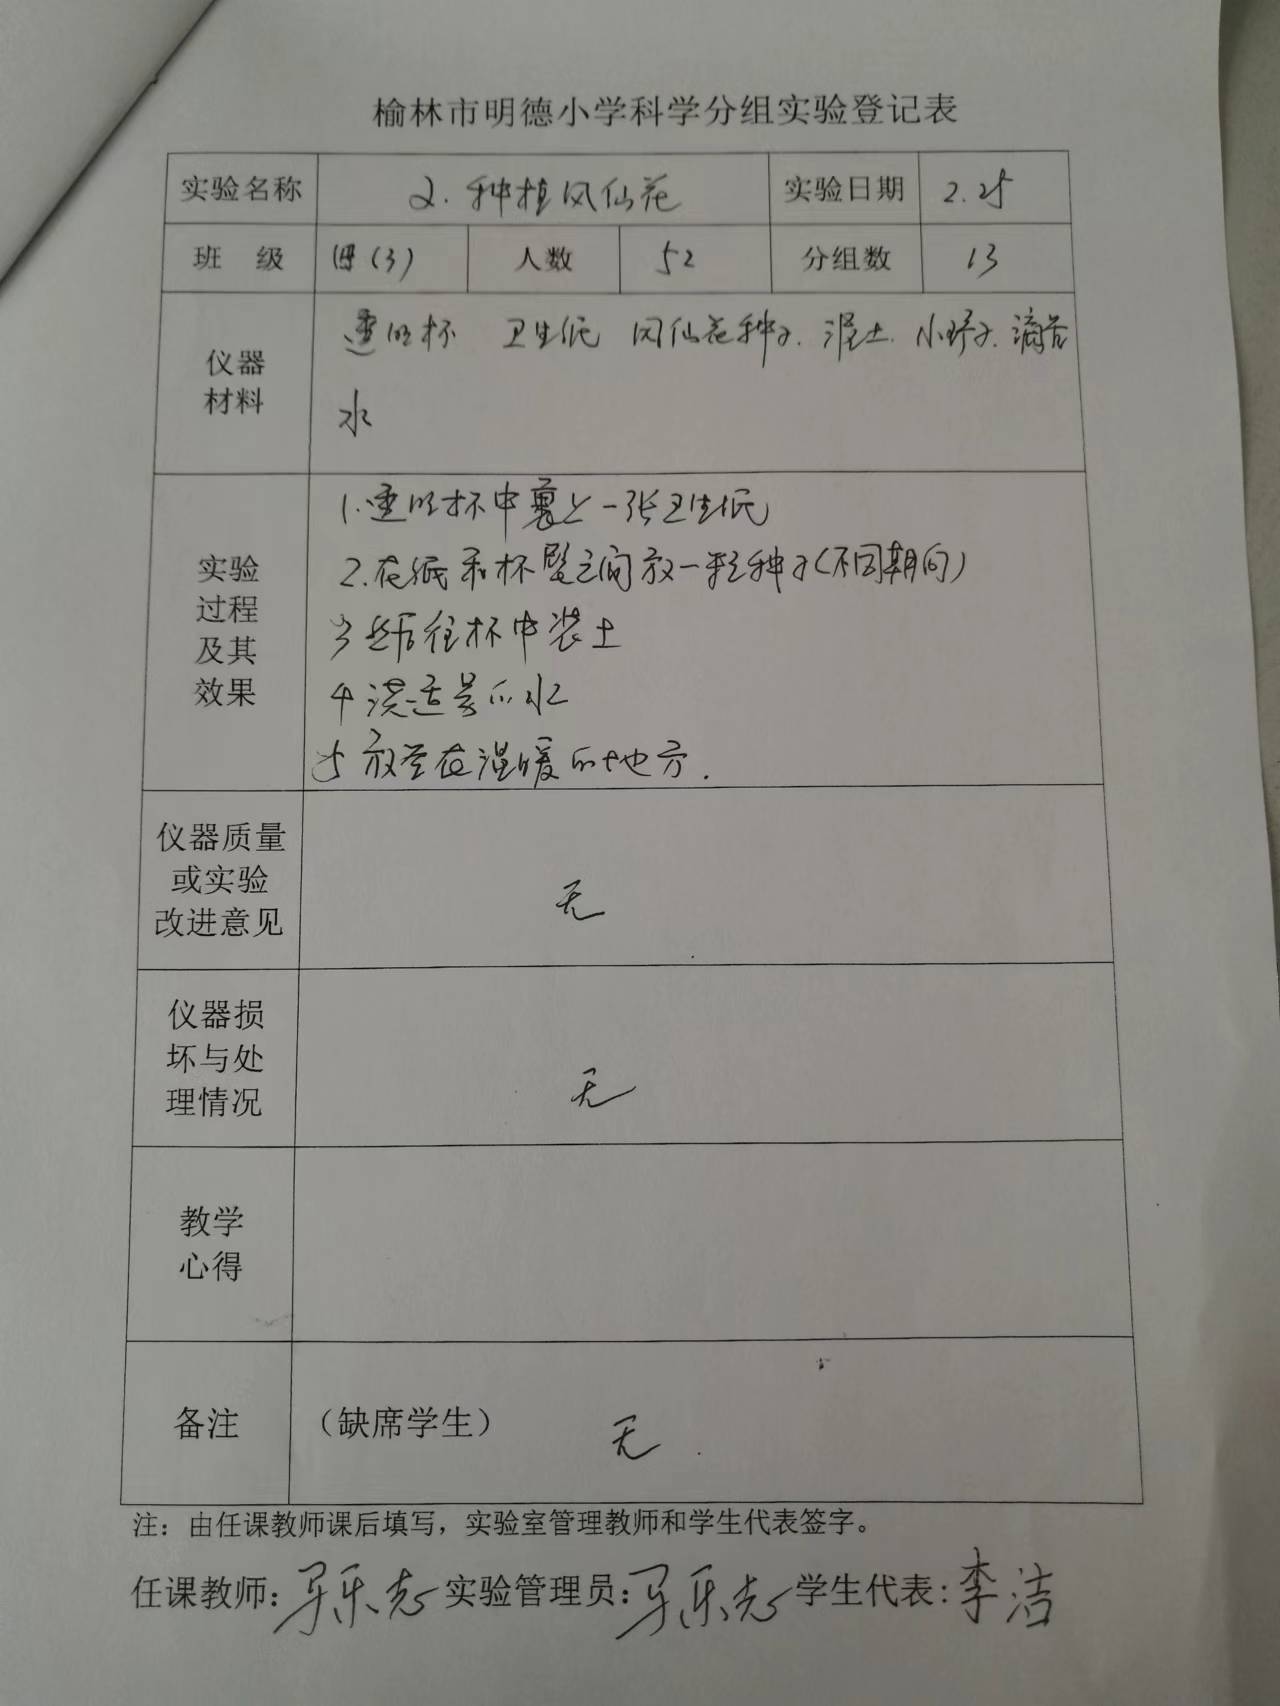 榆林市明德小学科学分组实验登记表
实验名称 2. 种植凤仙花 实验日期 2.25
班 级 四(3) 人数 52 分组数 13
仪器材料 透明杯 卫生纸 凤仙花种子. 泥土. 小铲子. 滴管
水
实验过程及其效果
1.透明杯中裹上一张卫生纸
2.在纸和杯壁之间放一粒种子(不同朝向)
3 然后往杯中装土
4 浇适量的水
5 放至在温暖的地方.
仪器质量或实验改进意见 无
仪器损坏与处理情况 无
教学心得
备注 (缺席学生) 无
注：由任课教师课后填写，实验室管理教师和学生代表签字。
任课教师: 马乐志 实验管理员: 马乐志 学生代表: 李洁